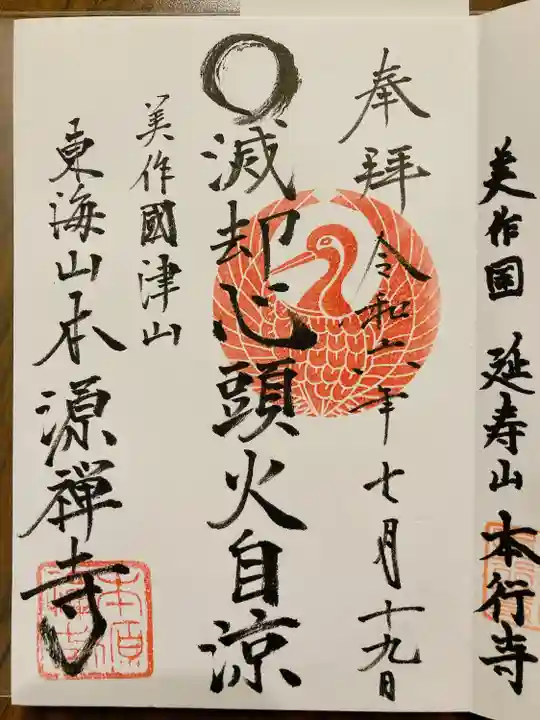 美作国 延寿山 本行寺
奉拝 令和六年七月十九日
滅却心頭火自涼
美作國津山
東海山本源禅寺